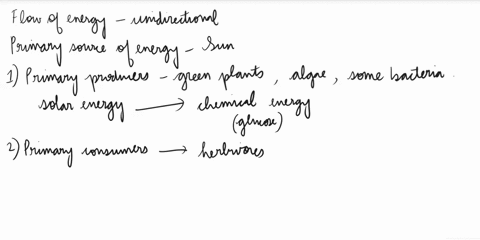 Flow of energy – unidirectional
Primary source of energy – Sun
1) Primary producers – green plants, algae, some bacteria.
solar energy → chemical energy
(glucose)
2) Primary consumers → herbivores